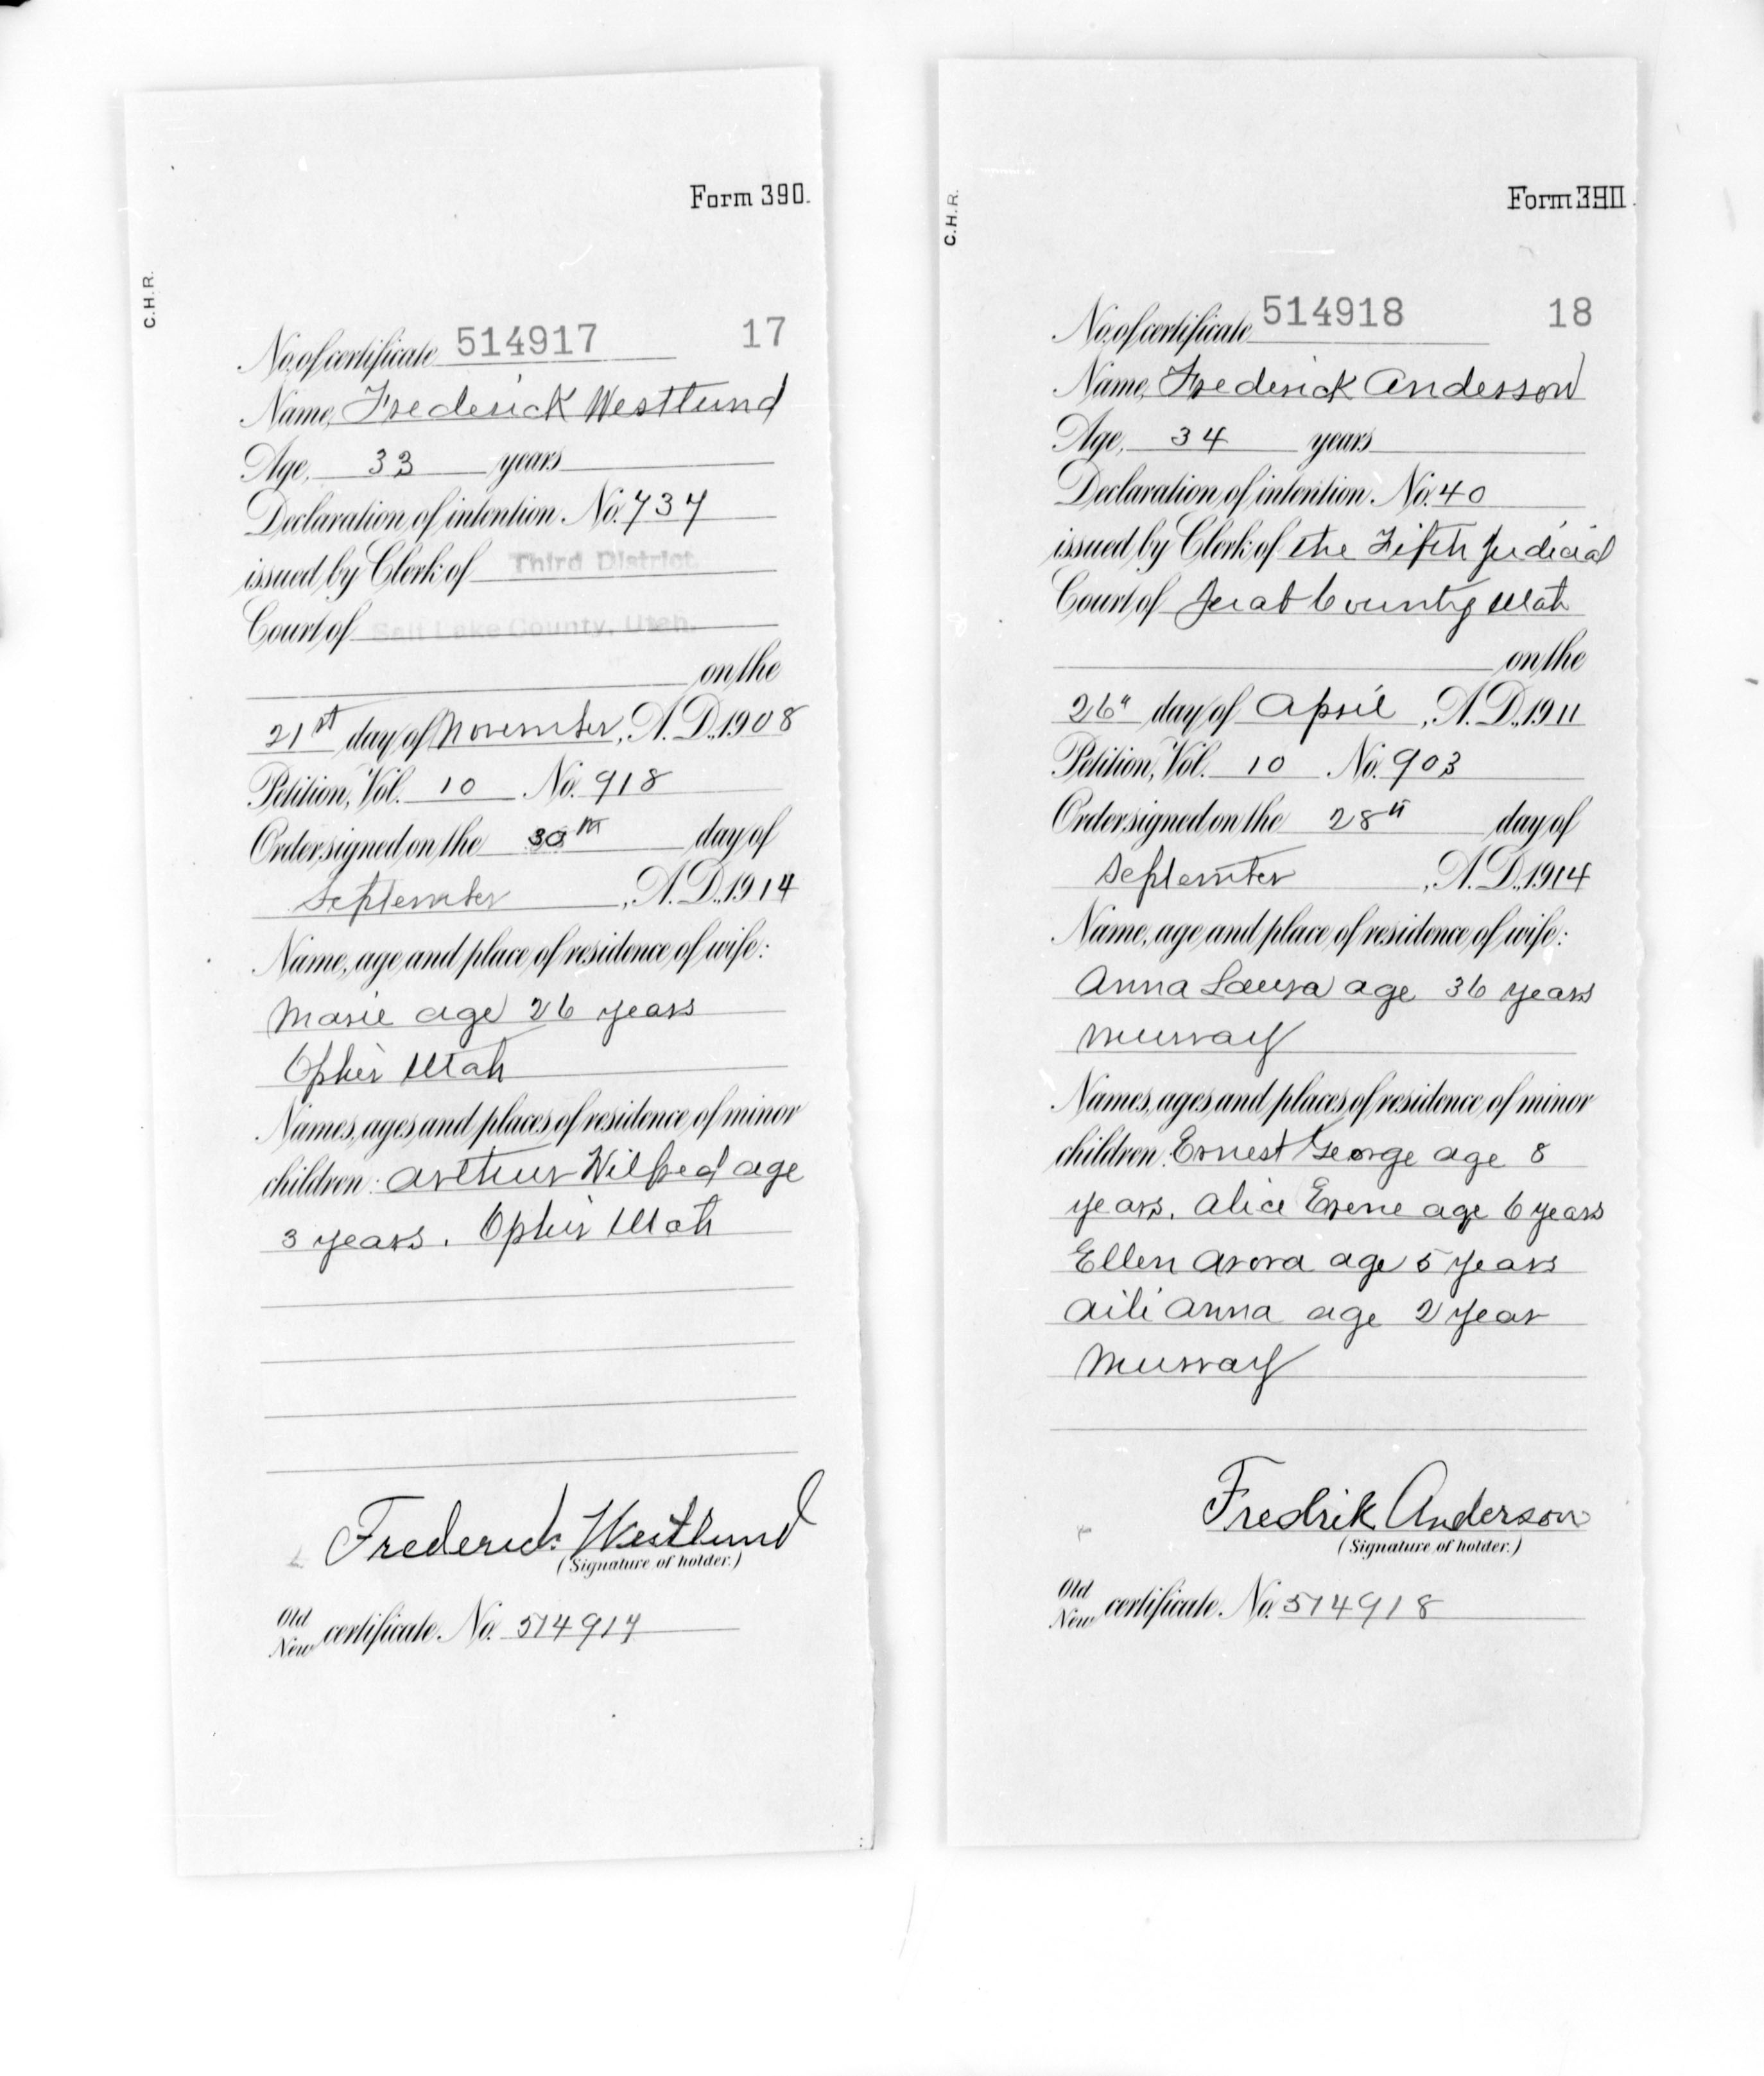 Form 390.
C.H.R.
No. of certificate 514917 17
Name, Frederick Westlund
Age, 33 years
Declaration of intention No. 737
issued by Clerk of Third District
Court of Salt Lake County, Utah.
on the
21st day of November, A.D. 1908
Petition, Vol. 10 No. 918
Order signed on the 30th day of
September, A.D. 1914
Name, age and place of residence of wife:
Marie age 26 years
Ophir Utah
Names, ages and places of residence of minor
children: Arthur Wilfred age
3 years. Ophir Utah
Frederick Westlund
(Signature of holder.)
Old
New certificate No. 514917
Form 390.
C.H.R.
No. of certificate 514918 18
Name, Frederick Anderson
Age, 34 years
Declaration of intention No. 40
issued by Clerk of the Fifth Judicial
Court of Juab County Utah
on the
26" day of April, A.D. 1911
Petition, Vol. 10 No. 903
Order signed on the 28" day of
September, A.D. 1914
Name, age and place of residence of wife:
Anna Laura age 36 years
Murray
Names, ages and places of residence of minor
children: Ernest George age 8
years. Alice Erene age 6 years
Ellen Arora age 5 years
Aili Anna age 2 year
Murray
Fredrik Anderson
(Signature of holder.)
Old
New certificate No. 514918